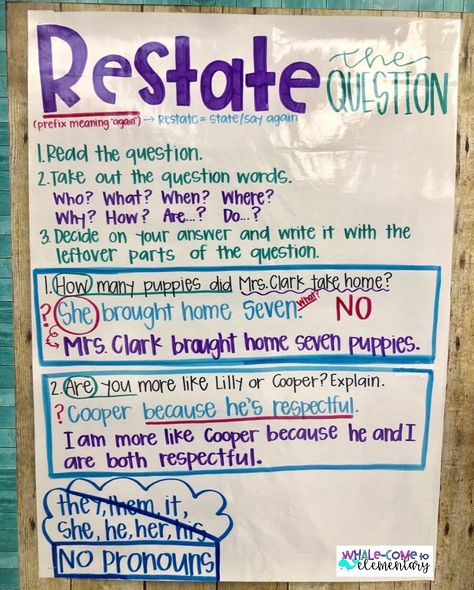 Restate the
QUESTION
(prefix meaning "again") → Restate = state/say again
1. Read the question.
2. Take out the question words.
Who? What? When? Where?
Why? How? Are...? Do...?
3. Decide on your answer and write it with the
leftover parts of the question.
1. How many puppies did Mrs. Clark take home?
? She brought home seven. What? NO
Mrs. Clark brought home seven puppies.
2. Are you more like Lilly or Cooper? Explain.
? Cooper because he's respectful.
I am more like Cooper because he and I
are both respectful.
they, them, it,
she, he, her, his
NO PRONOUNS
WHALE-COME to
elementary